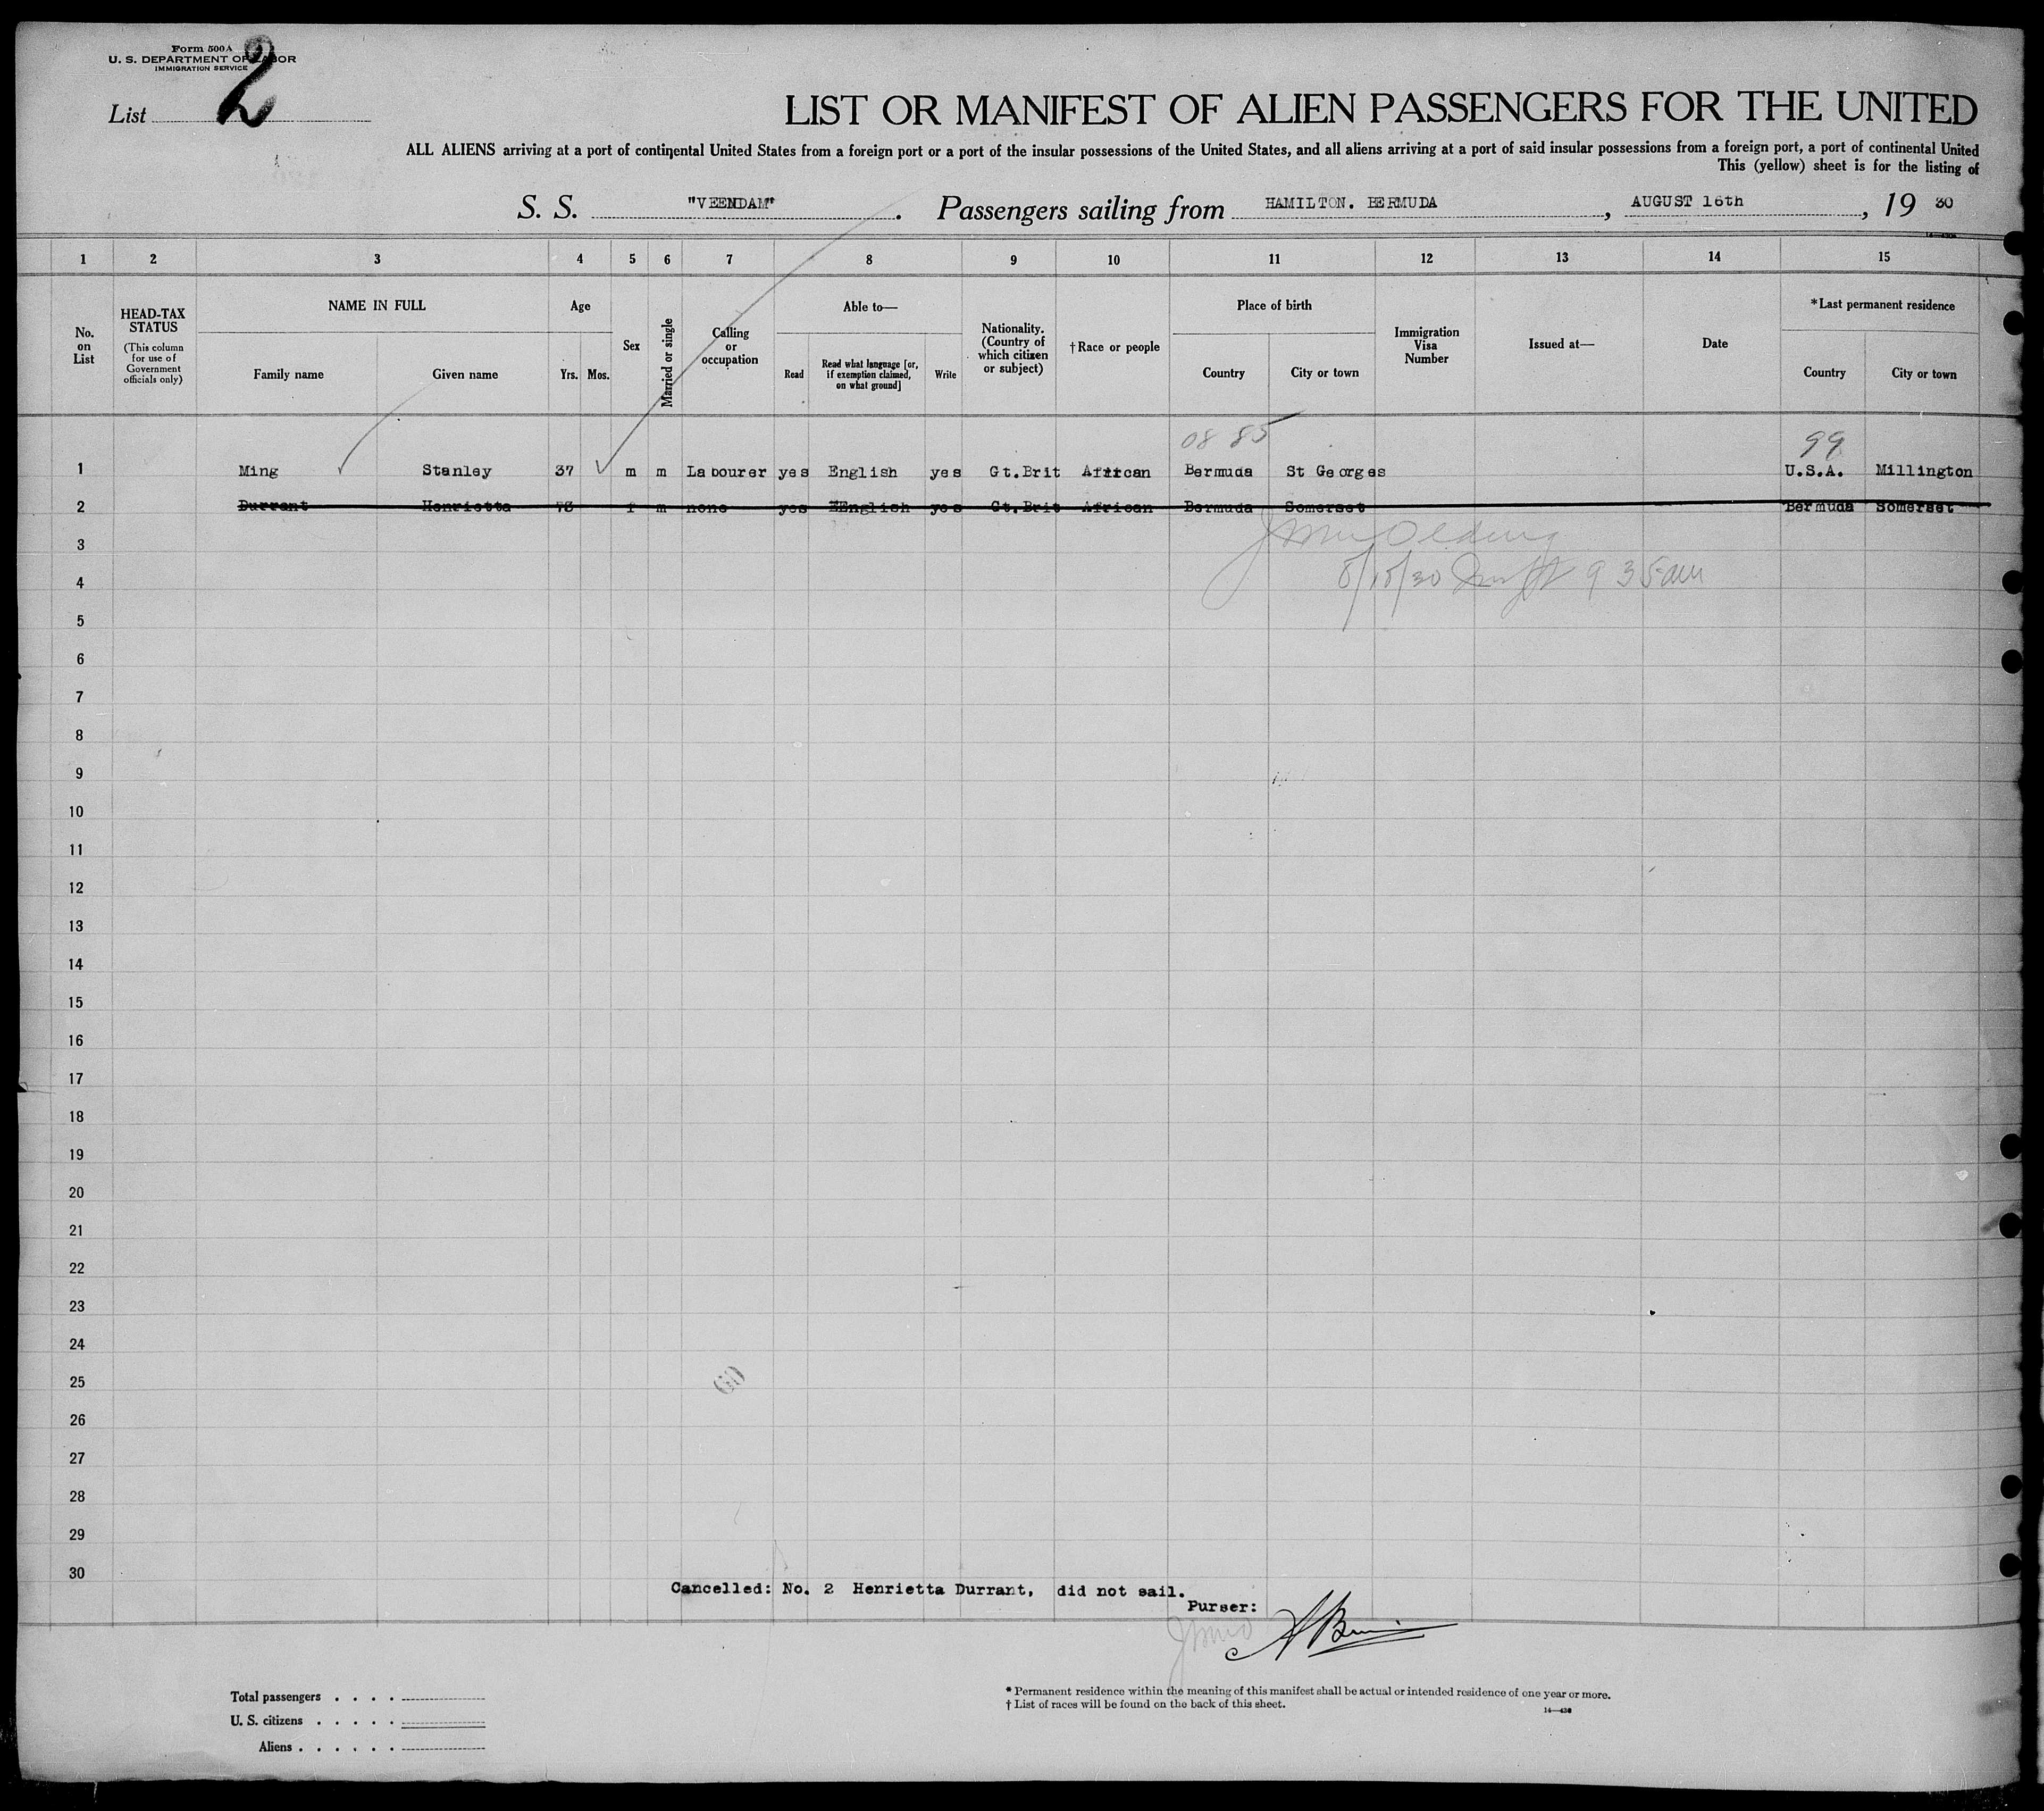 Form 500A
U. S. DEPARTMENT OF LABOR
IMMIGRATION SERVICE
List 2
LIST OR MANIFEST OF ALIEN PASSENGERS FOR THE UNITED
ALL ALIENS arriving at a port of continental United States from a foreign port or a port of the insular possessions of the United States, and all aliens arriving at a port of said insular possessions from a foreign port, a port of continental United
This (yellow) sheet is for the listing of
S. S. "VEENDAM" . Passengers sailing from HAMILTON. BERMUDA , AUGUST 16th , 19 30
1 2 3 4 5 6 7 8 9 10 11 12 13 14 15
No. on List
HEAD-TAX STATUS (This column for use of Government officials only)
NAME IN FULL
Family name Given name
Age
Yrs. Mos.
Sex
Married or single
Calling or occupation
Able to—
Read
Read what language [or, if exemption claimed, on what ground]
Write
Nationality. (Country of which citizen or subject)
†Race or people
Place of birth
Country City or town
Immigration Visa Number
Issued at—
Date
*Last permanent residence
Country City or town
08 85 99
1 Ming Stanley 37 m m Labourer yes English yes Gt.Brit African Bermuda St Georges U.S.A. Millington
2 Durrant Henrietta 73 f m none yes EEnglish yes Gt.Brit African Bermuda Somerset Bermuda Somerset
3
4 9 35 am
5
6
7
8
9
10
11
12
13
14
15
16
17
18
19
20
21
22
23
24
25
26
27
28
29
30
Cancelled: No. 2 Henrietta Durrant, did not sail.
Purser:
Total passengers . . . .
U. S. citizens . . . . .
Aliens . . . . . .
* Permanent residence within the meaning of this manifest shall be actual or intended residence of one year or more.
† List of races will be found on the back of this sheet.